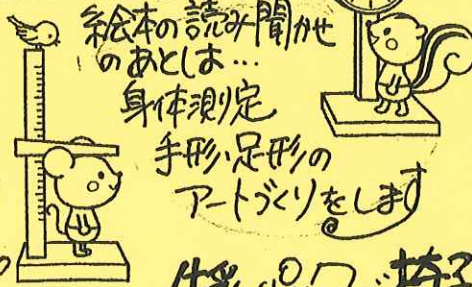 絵本の読み聞かせ
のあとは…
身体測定
手形・足形の
アートづくりをします
牛乳パック 椅子